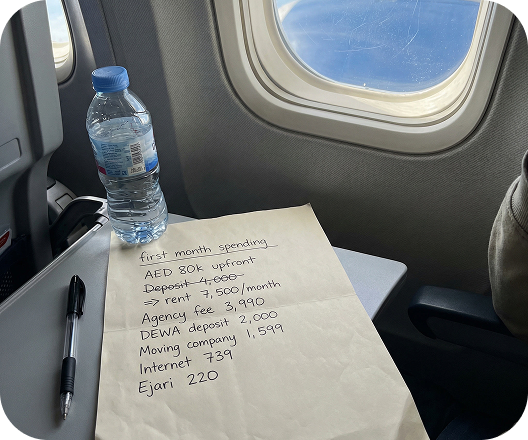 first month spending
AED 80k upfront
Deposit 4,000
=> rent 7,500/month
Agency fee 3,990
DEWA deposit 2,000
Moving company 1,599
Internet 739
Ejari 220